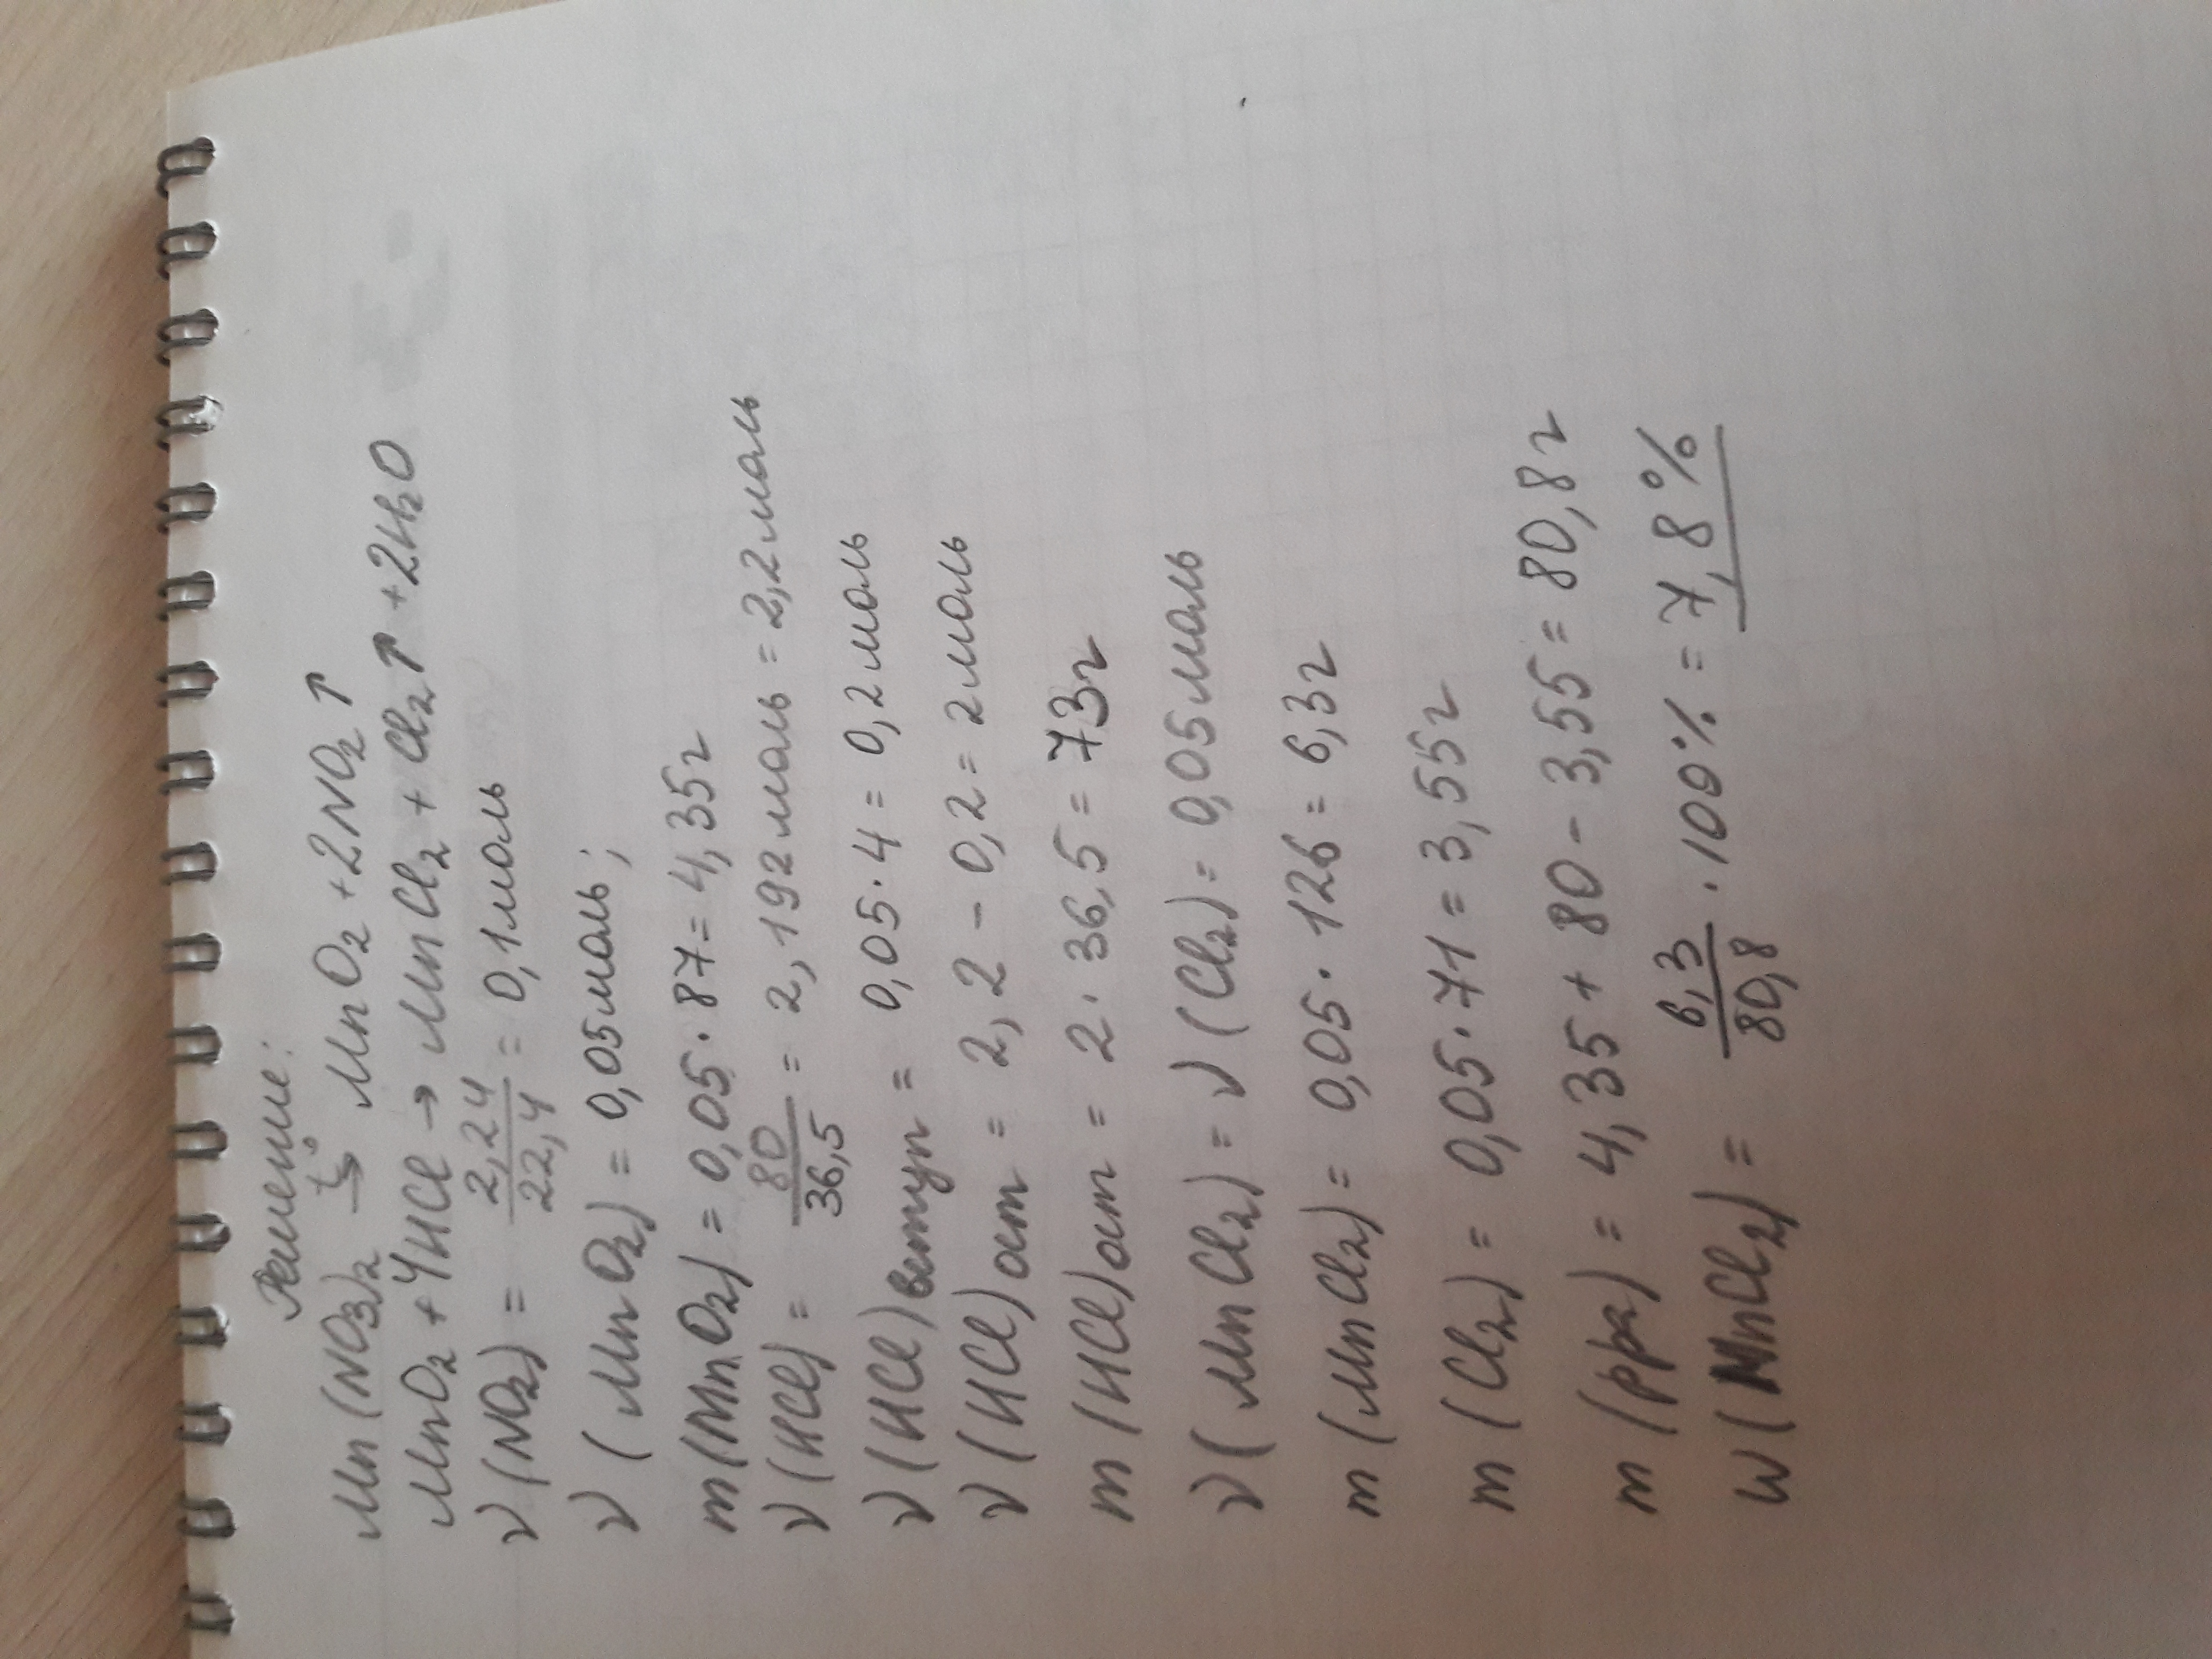 Решение:
Mn(NO₃)₂ t°→ MnO₂ + 2NO₂↑
MnO₂ + 4HCl → MnCl₂ + Cl₂↑ + 2H₂O
ν(NO₂) = 2,24/22,4 = 0,1моль
ν(MnO₂) = 0,05моль;
m(MnO₂) = 0,05·87 = 4,35г
ν(HCl) = 80/36,5 = 2,192моль = 2,2моль
ν(HCl)вступ = 0,05·4 = 0,2моль
ν(HCl)ост = 2,2 - 0,2 = 2моль
m(HCl)ост = 2·36,5 = 73г
ν(MnCl₂) = ν(Cl₂) = 0,05моль
m(MnCl₂) = 0,05·126 = 6,3г
m(Cl₂) = 0,05·71 = 3,55г
m(рра) = 4,35 + 80 - 3,55 = 80,8г
w(MnCl₂) = 6,3/80,8 · 100% = 7,8%